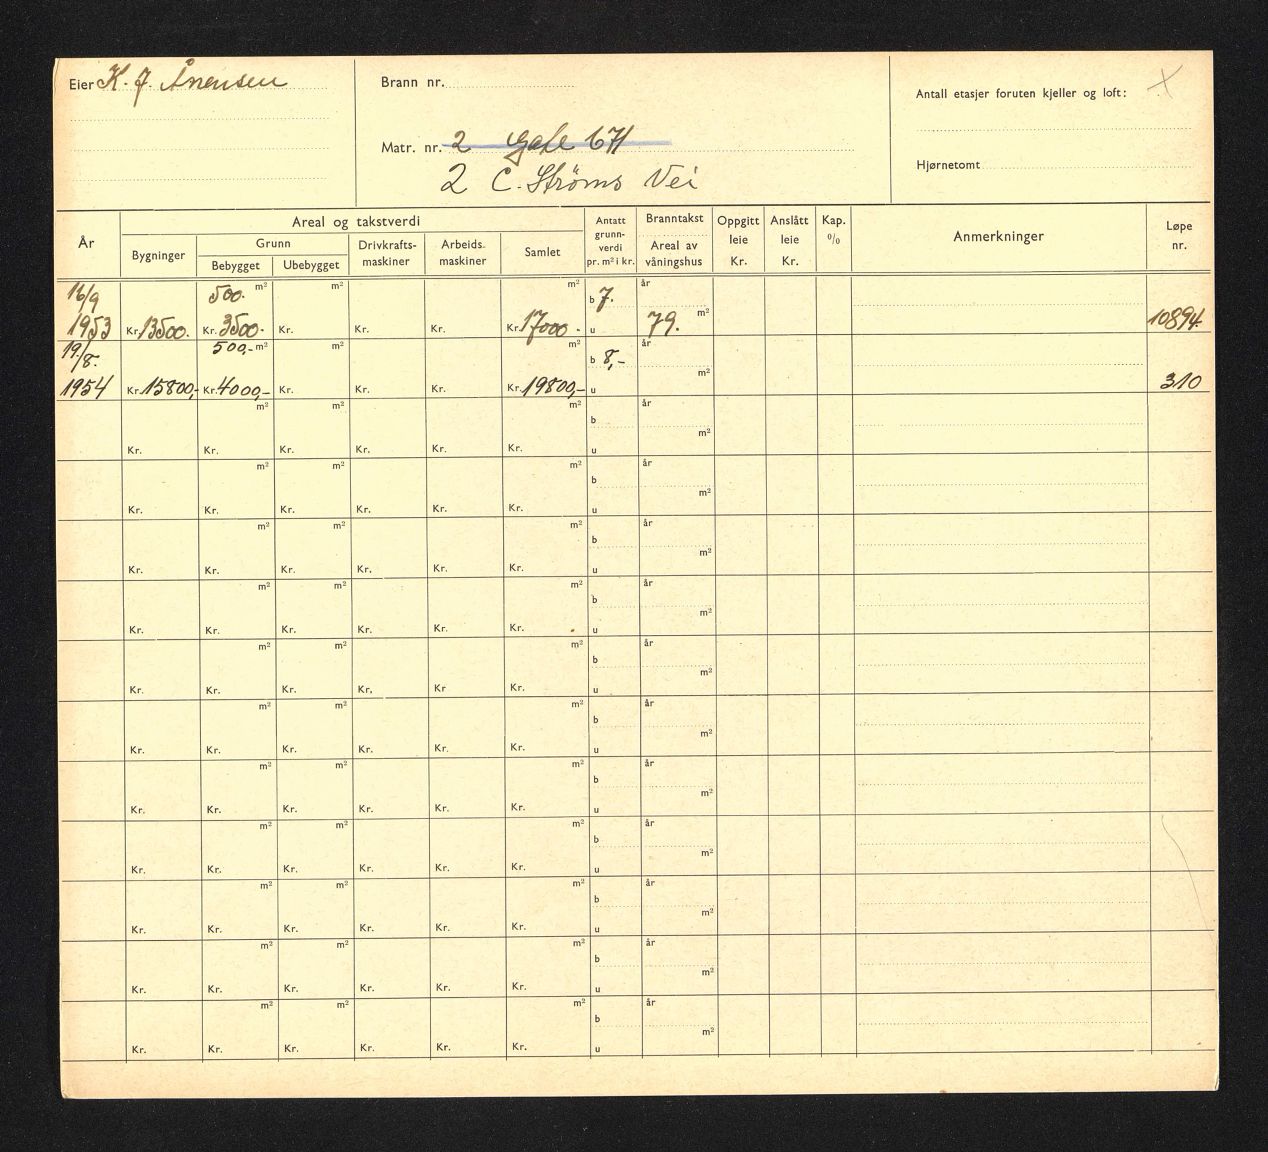 Eier K. J. Ånensen
Brann nr.
Antall etasjer foruten kjeller og loft: x
Matr. nr. 2 Gate 671
2 C. Strøms Vei
Hjørnetomt
År
Areal og takstverdi
Bygninger
Grunn
Bebygget
Ubebygget
Drivkrafts-
maskiner
Arbeids.
maskiner
Samlet
Antatt
grunn-
verdi
pr. m² i kr.
Branntakst
Areal av
våningshus
Oppgitt
leie
Kr.
Anslått
leie
Kr.
Kap.
%
Anmerkninger
Løpe
nr.
16/9 500. m² m² m² b 7. år
1953 Kr. 13500. Kr. 3500.- Kr. Kr. Kr. Kr. 17000.- u 79. m² 10894.
19./8. 500,- m² m² m² b 8,- år
1954 Kr. 15800,- Kr. 4000,- Kr. Kr. Kr. Kr. 19800,- u m² 310
m² m² m² b år
Kr. Kr. Kr. Kr. Kr. Kr. u m²
m² m² m² b år
Kr. Kr. Kr. Kr. Kr. Kr. u m²
m² m² m² b år
Kr. Kr. Kr. Kr. Kr. Kr. u m²
m² m² m² b år
Kr. Kr. Kr. Kr. Kr. Kr. u m²
m² m² m² b år
Kr. Kr. Kr. Kr. Kr Kr. u m²
m² m² m² b år
Kr. Kr. Kr. Kr. Kr. Kr. u m²
m² m² m² b år
Kr. Kr. Kr. Kr. Kr. Kr. u m²
m² m² m² b år
Kr. Kr. Kr. Kr. Kr. Kr. u m²
m² m² m² b år
Kr. Kr. Kr. Kr. Kr. Kr. u m²
m² m² m² b år
Kr. Kr. Kr. Kr. Kr. Kr. u m²
m² m² m² b år
Kr. Kr. Kr. Kr. Kr. Kr. u m²